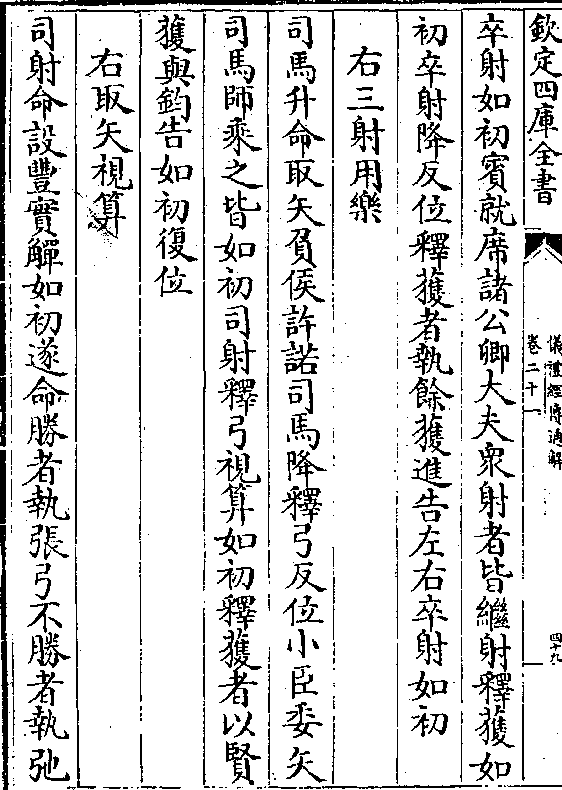 欽定四庫全書
儀禮經傳通解
卷二十一
四十九
卒射如初賓就席諸公卿大夫衆射者皆繼射釋獲如
初卒射降反位釋獲者執餘獲進告左右卒射如初
右三射用樂
司馬升命取矢負侯許諾司馬降釋弓反位小臣委矢
司馬師乘之皆如初司射釋弓視算如初釋獲者以賢
獲與鈞告如初復位
右取矢視算
司射命設豐實觶如初遂命勝者執張弓不勝者執弛